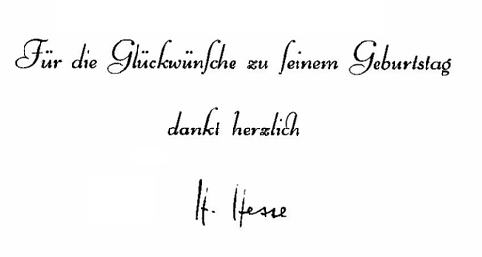 Für die Glückwünſche zu ſeinem Geburtstag
dankt herzlich
H. Hesse